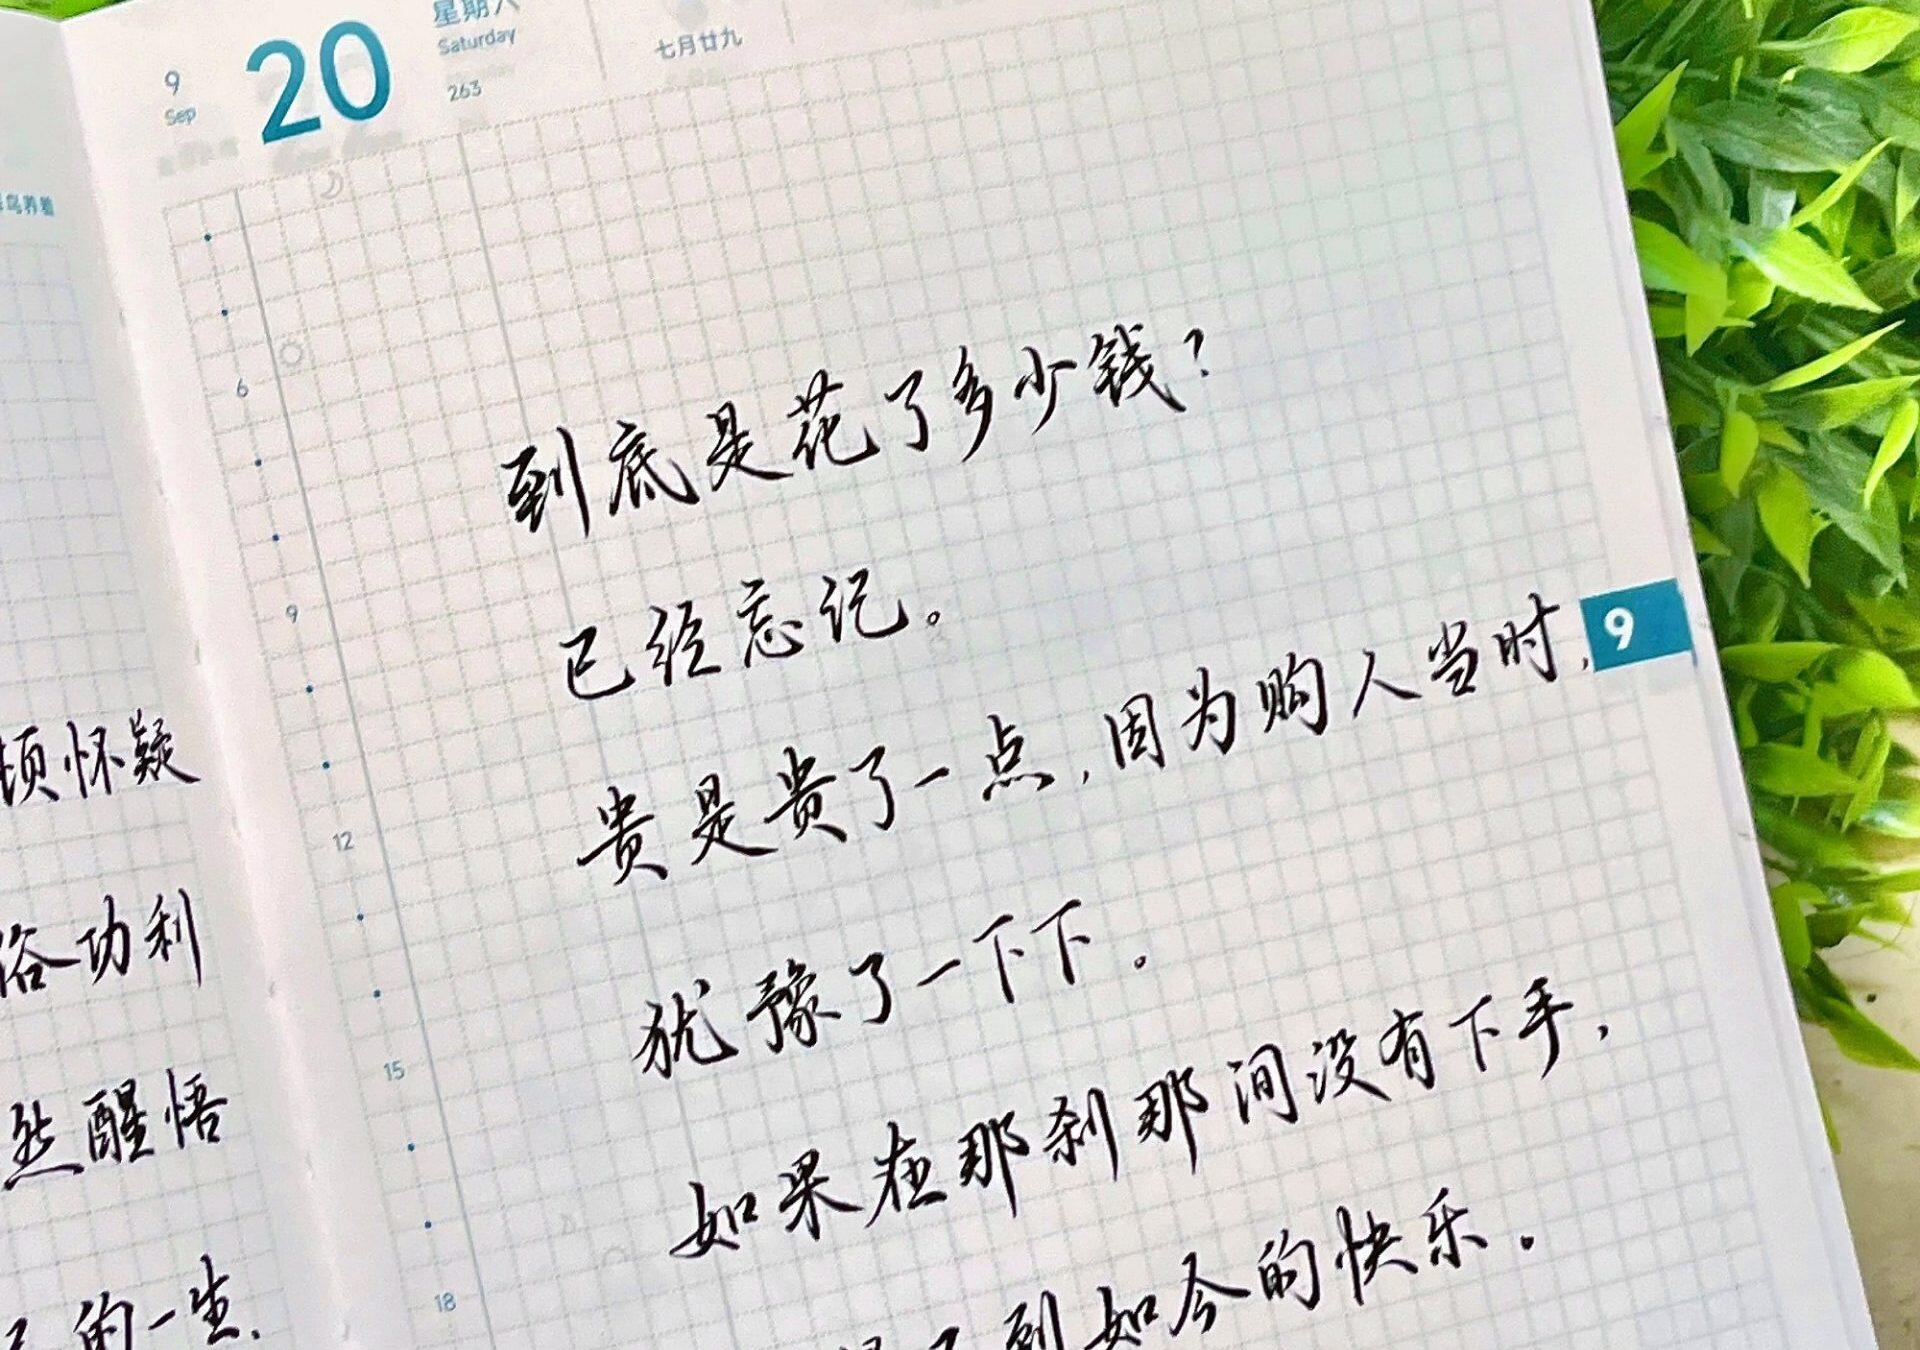 鸟养着
顿怀疑
俗功利
然醒悟
的一生.
9
Sep
20
星期六
Saturday
263
七月廿九
6
9
12
15
18
到底是花了多少钱?
已经忘记。
贵是贵了一点,因为购人当时,
犹豫了一下下。
如果在那刹那间没有下手,
到如今的快乐.
9